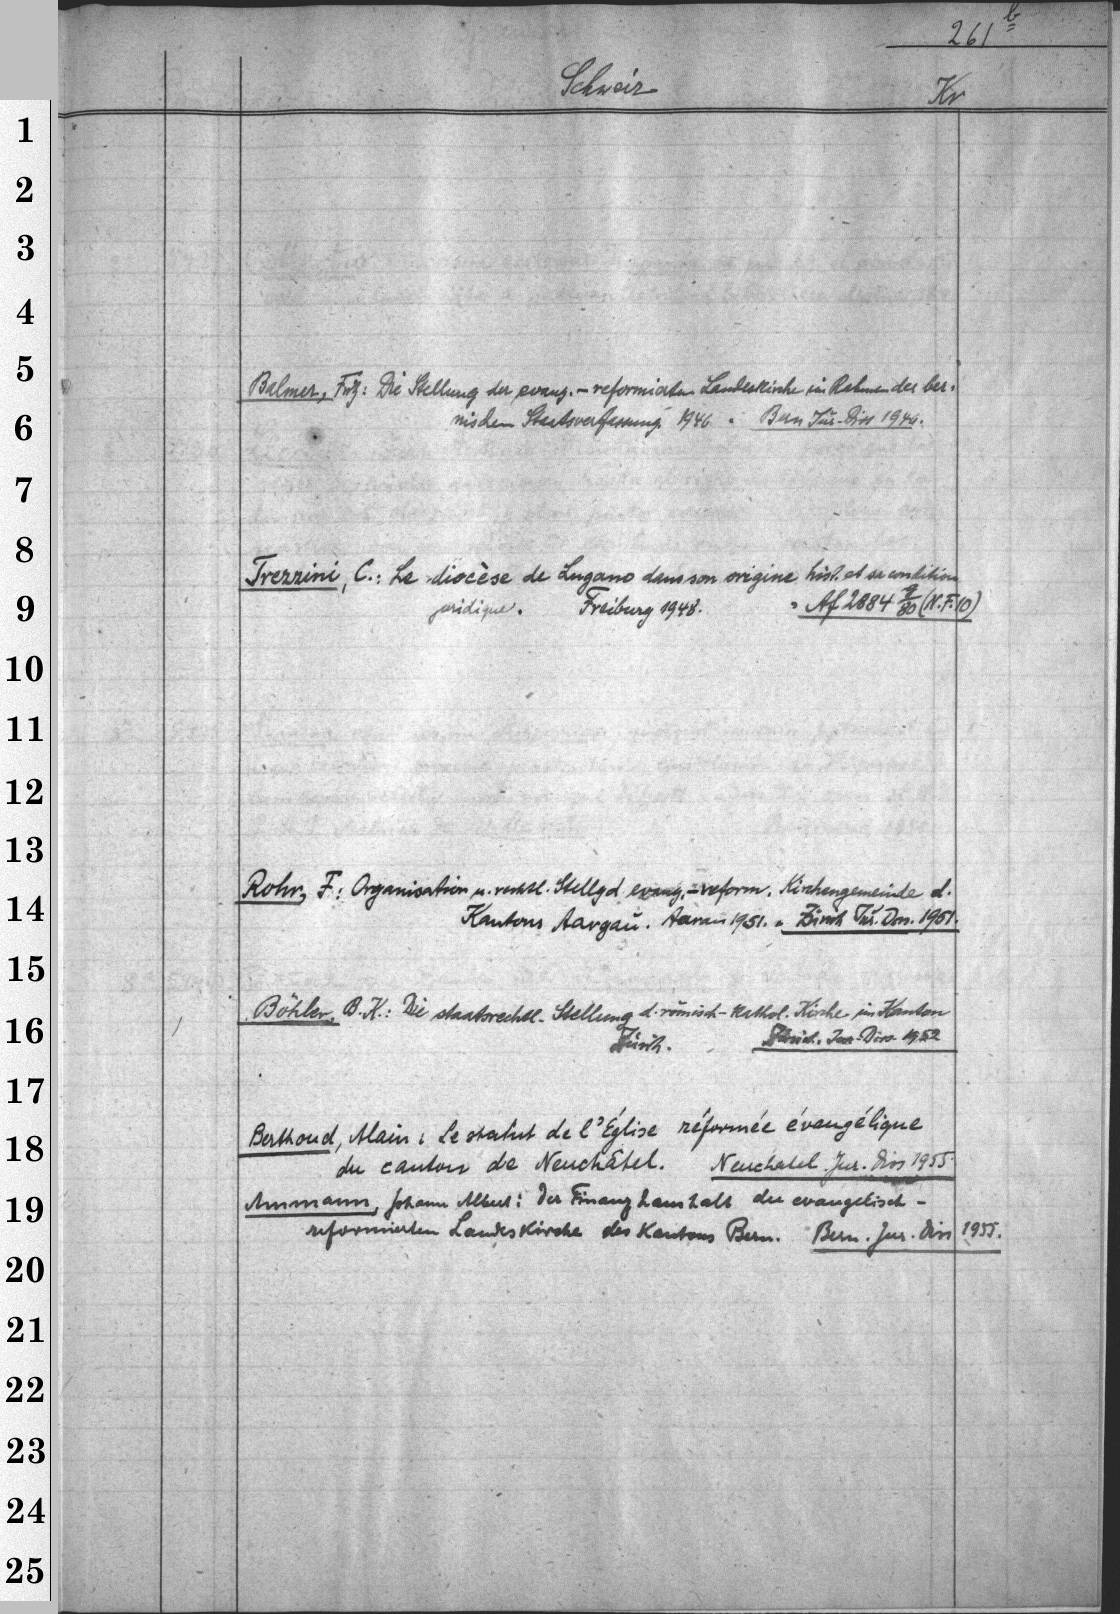 261 b
Schweiz Kr
1
2
3
4
5
Balmer, Fritz: Die Stellung der evang.-reformierten Landeskirche im Rahmen der ber-
6
nischen Staatsverfassung 1946. Bern Jur.-Diss 1946.
7
8
Trezzini, C.: Le diocèse de Lugano dans son origine hist. et sa condition
9
juridique. Freiburg 1948. Af 2884 9/80 (N.F. 10)
10
11
12
13
Rohr, F.: Organisation u. rechtl. Stellg d. evang.-reform. Kirchengemeinde d.
14
Kantons Aargau. Aarau 1951. Zürich Jur. Diss. 1951.
15
Böhler, B.K.: Die staatsrechtl. Stellung d. römisch-kathol. Kirche im Kanton
16
Zürich. Zürich. Jur. Diss. 1952
17
Berthoud, Alain: Le statut de l'Église réformée évangélique
18
du canton de Neuchâtel. Neuchatel Jur. Diss 1955.
19
Ammann, Johann Albert: Der Finanzhaushalt der evangelisch-
reformierten Landeskirche des Kantons Bern. Bern. Jur. Diss 1955.
20
21
22
23
24
25